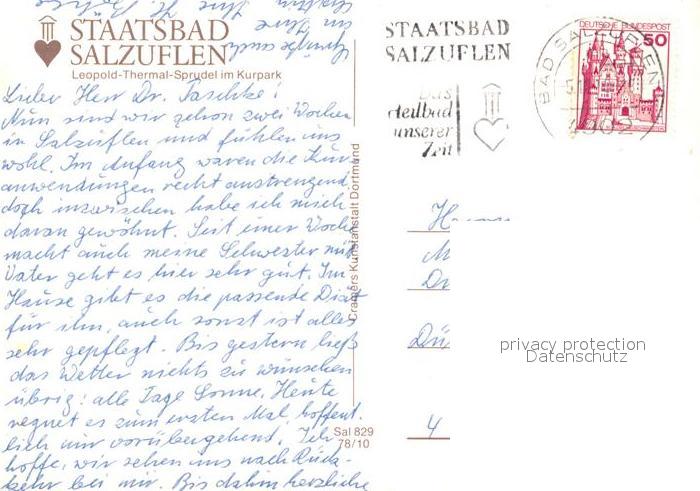 STAATSBAD
SALZUFLEN
Leopold-Thermal-Sprudel im Kurpark
Lieber Herr Dr. Taschke!
Nun sind wir schon zwei Wochen
in Salzuflen und fühlen uns
wohl. Im Anfang waren die Kur-
anwendungen recht anstrengend,
doch inzwischen habe ich mich
daran gewöhnt. Seit einer Woche
macht auch meine Schwester mit.
Vater geht es hier sehr gut. Im
Hause gibt es die passende Diät
für ihn, auch sonst ist alles
sehr gepflegt. Bis gestern ließ
das Wetter nichts zu wünschen
übrig: alle Tage Sonne. Heute
regnet es zum ersten Mal, hoffent-
lich nur vorübergehend. Ich
hoffe, wir sehen uns nach Rück-
kehr bei mir. Bis dahin herzliche
Cramers Kunstanstalt Dortmund
Sal 829
78/10
STAATSBAD
SALZUFLEN
Das
Heilbad
unserer
Zeit
BAD SALZUFLEN
4902
DEUTSCHE BUNDESPOST
50
H
M
Dr
Dü
4
privacy protection
Datenschutz